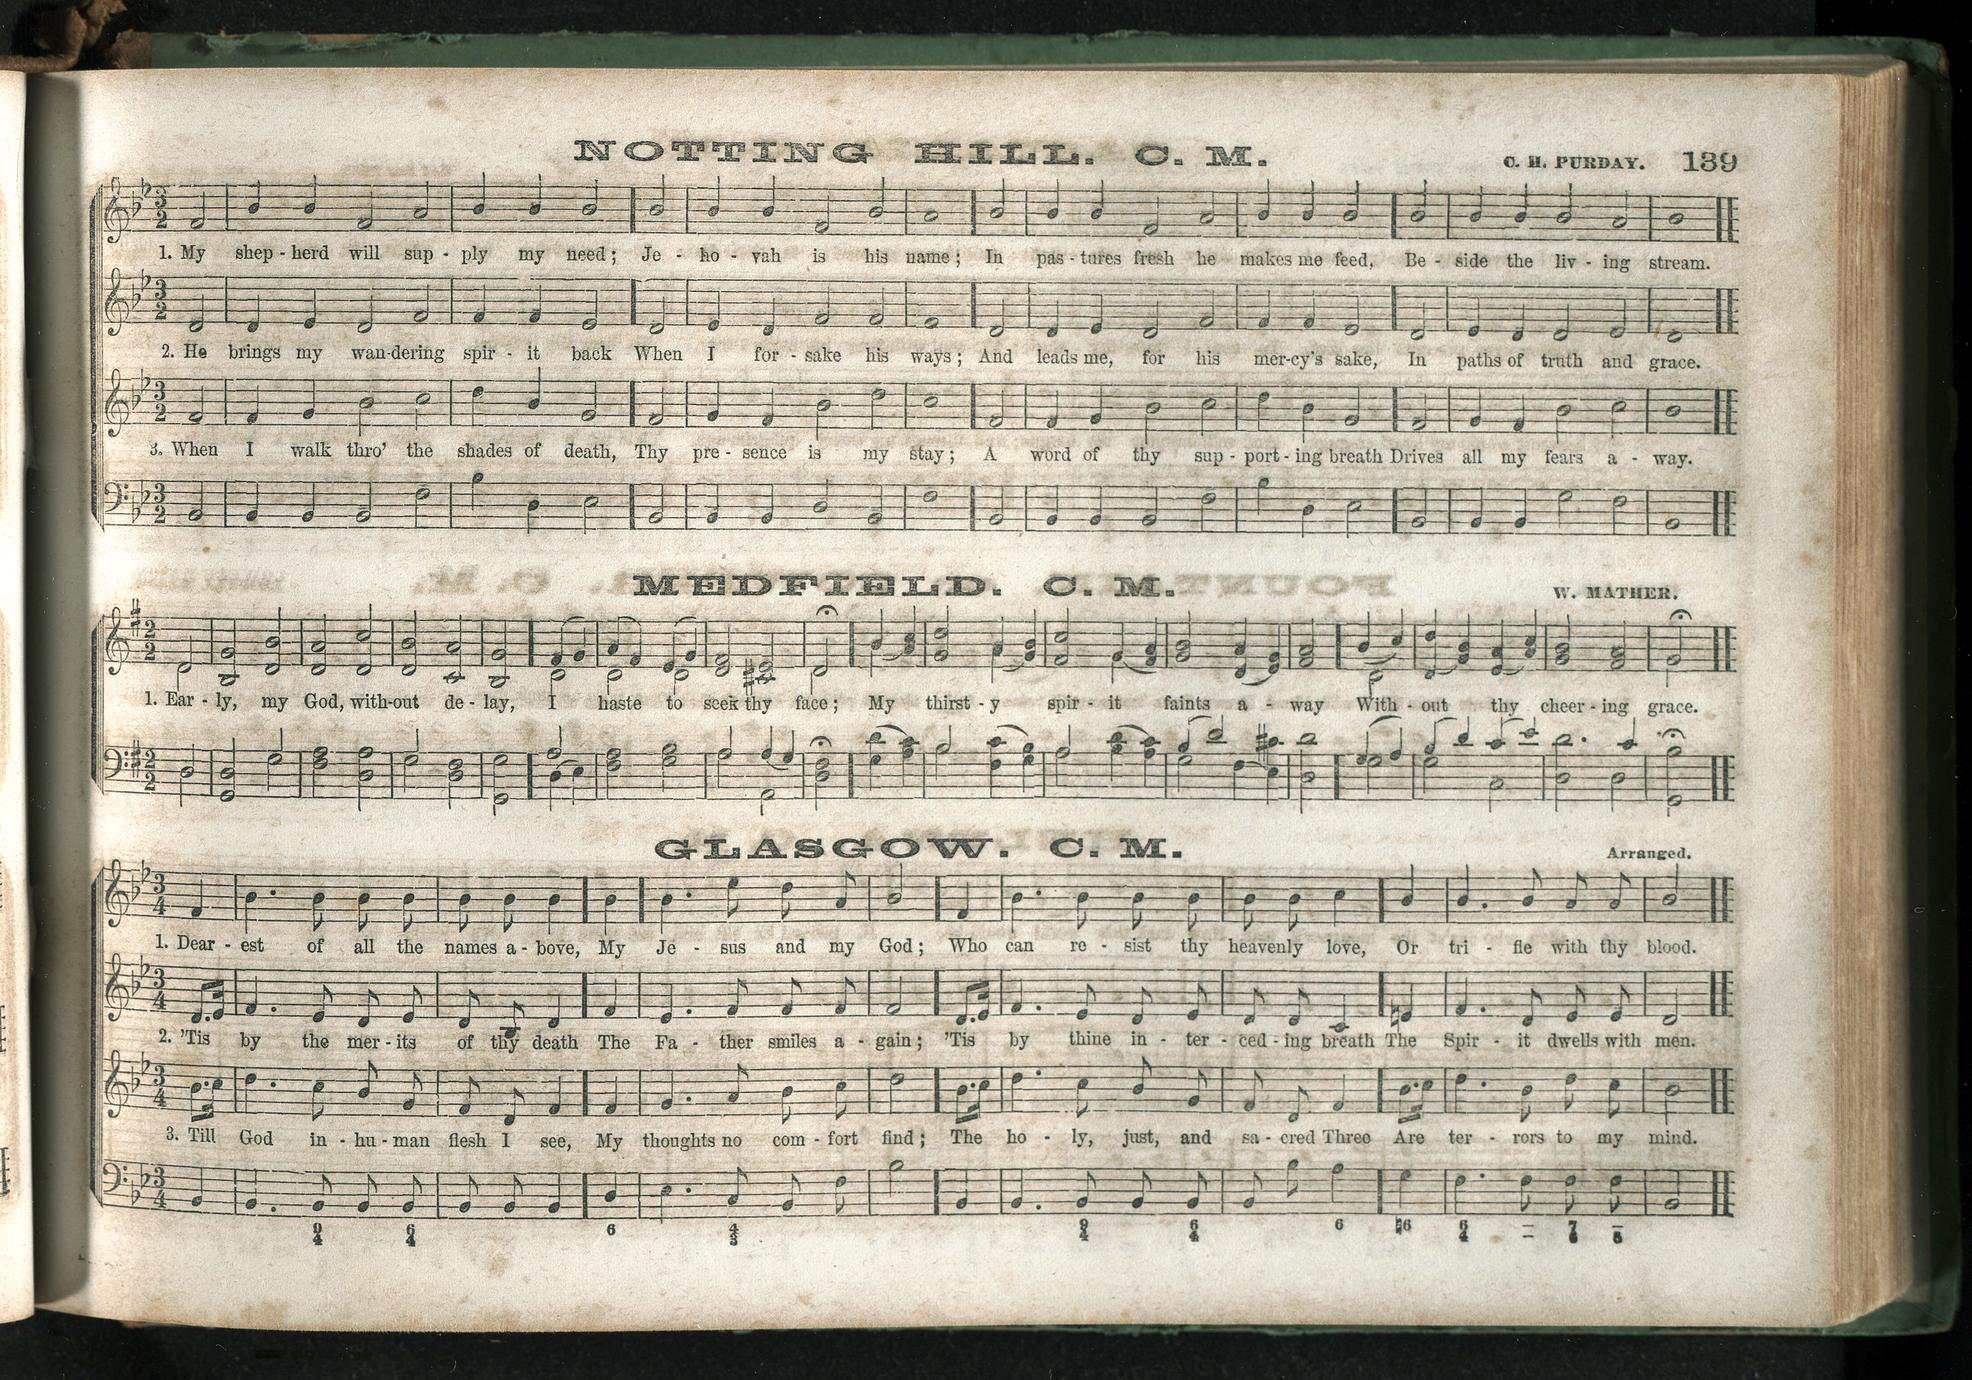 NOTTING HILL. C. M.
C. H. PURDAY. 139
1. My shep - herd will sup - ply my need ; Je - ho - vah is his name ; In pas - tures fresh he makes me feed, Be - side the liv - ing stream.
2. He brings my wan-dering spir - it back When I for - sake his ways ; And leads me, for his mer-cy's sake, In paths of truth and grace.
3. When I walk thro' the shades of death, Thy pre - sence is my stay ; A word of thy sup - port - ing breath Drives all my fears a - way.
MEDFIELD. C. M.
W. MATHER.
1. Ear - ly, my God, with-out de - lay, I haste to seek thy face ; My thirst - y spir - it faints a - way With - out thy cheer - ing grace.
GLASGOW. C. M.
Arranged.
1. Dear - est of all the names a - bove, My Je - sus and my God ; Who can re - sist thy heavenly love, Or tri - fle with thy blood.
2. 'Tis by the mer - its of thy death The Fa - ther smiles a - gain ; 'Tis by thine in - ter - ced - ing breath The Spir - it dwells with men.
3. Till God in - hu - man flesh I see, My thoughts no com - fort find ; The ho - ly, just, and sa - cred Three Are ter - rors to my mind.